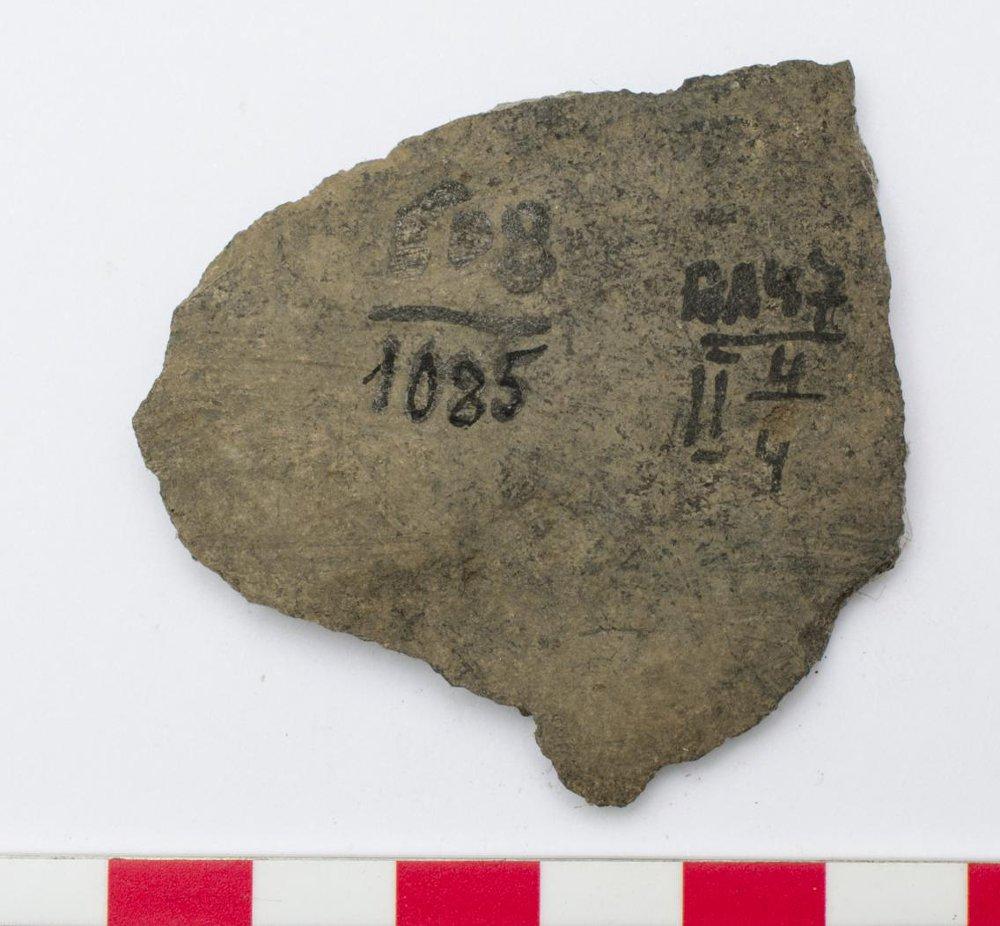 608
1085
БЛ47
II 4
4